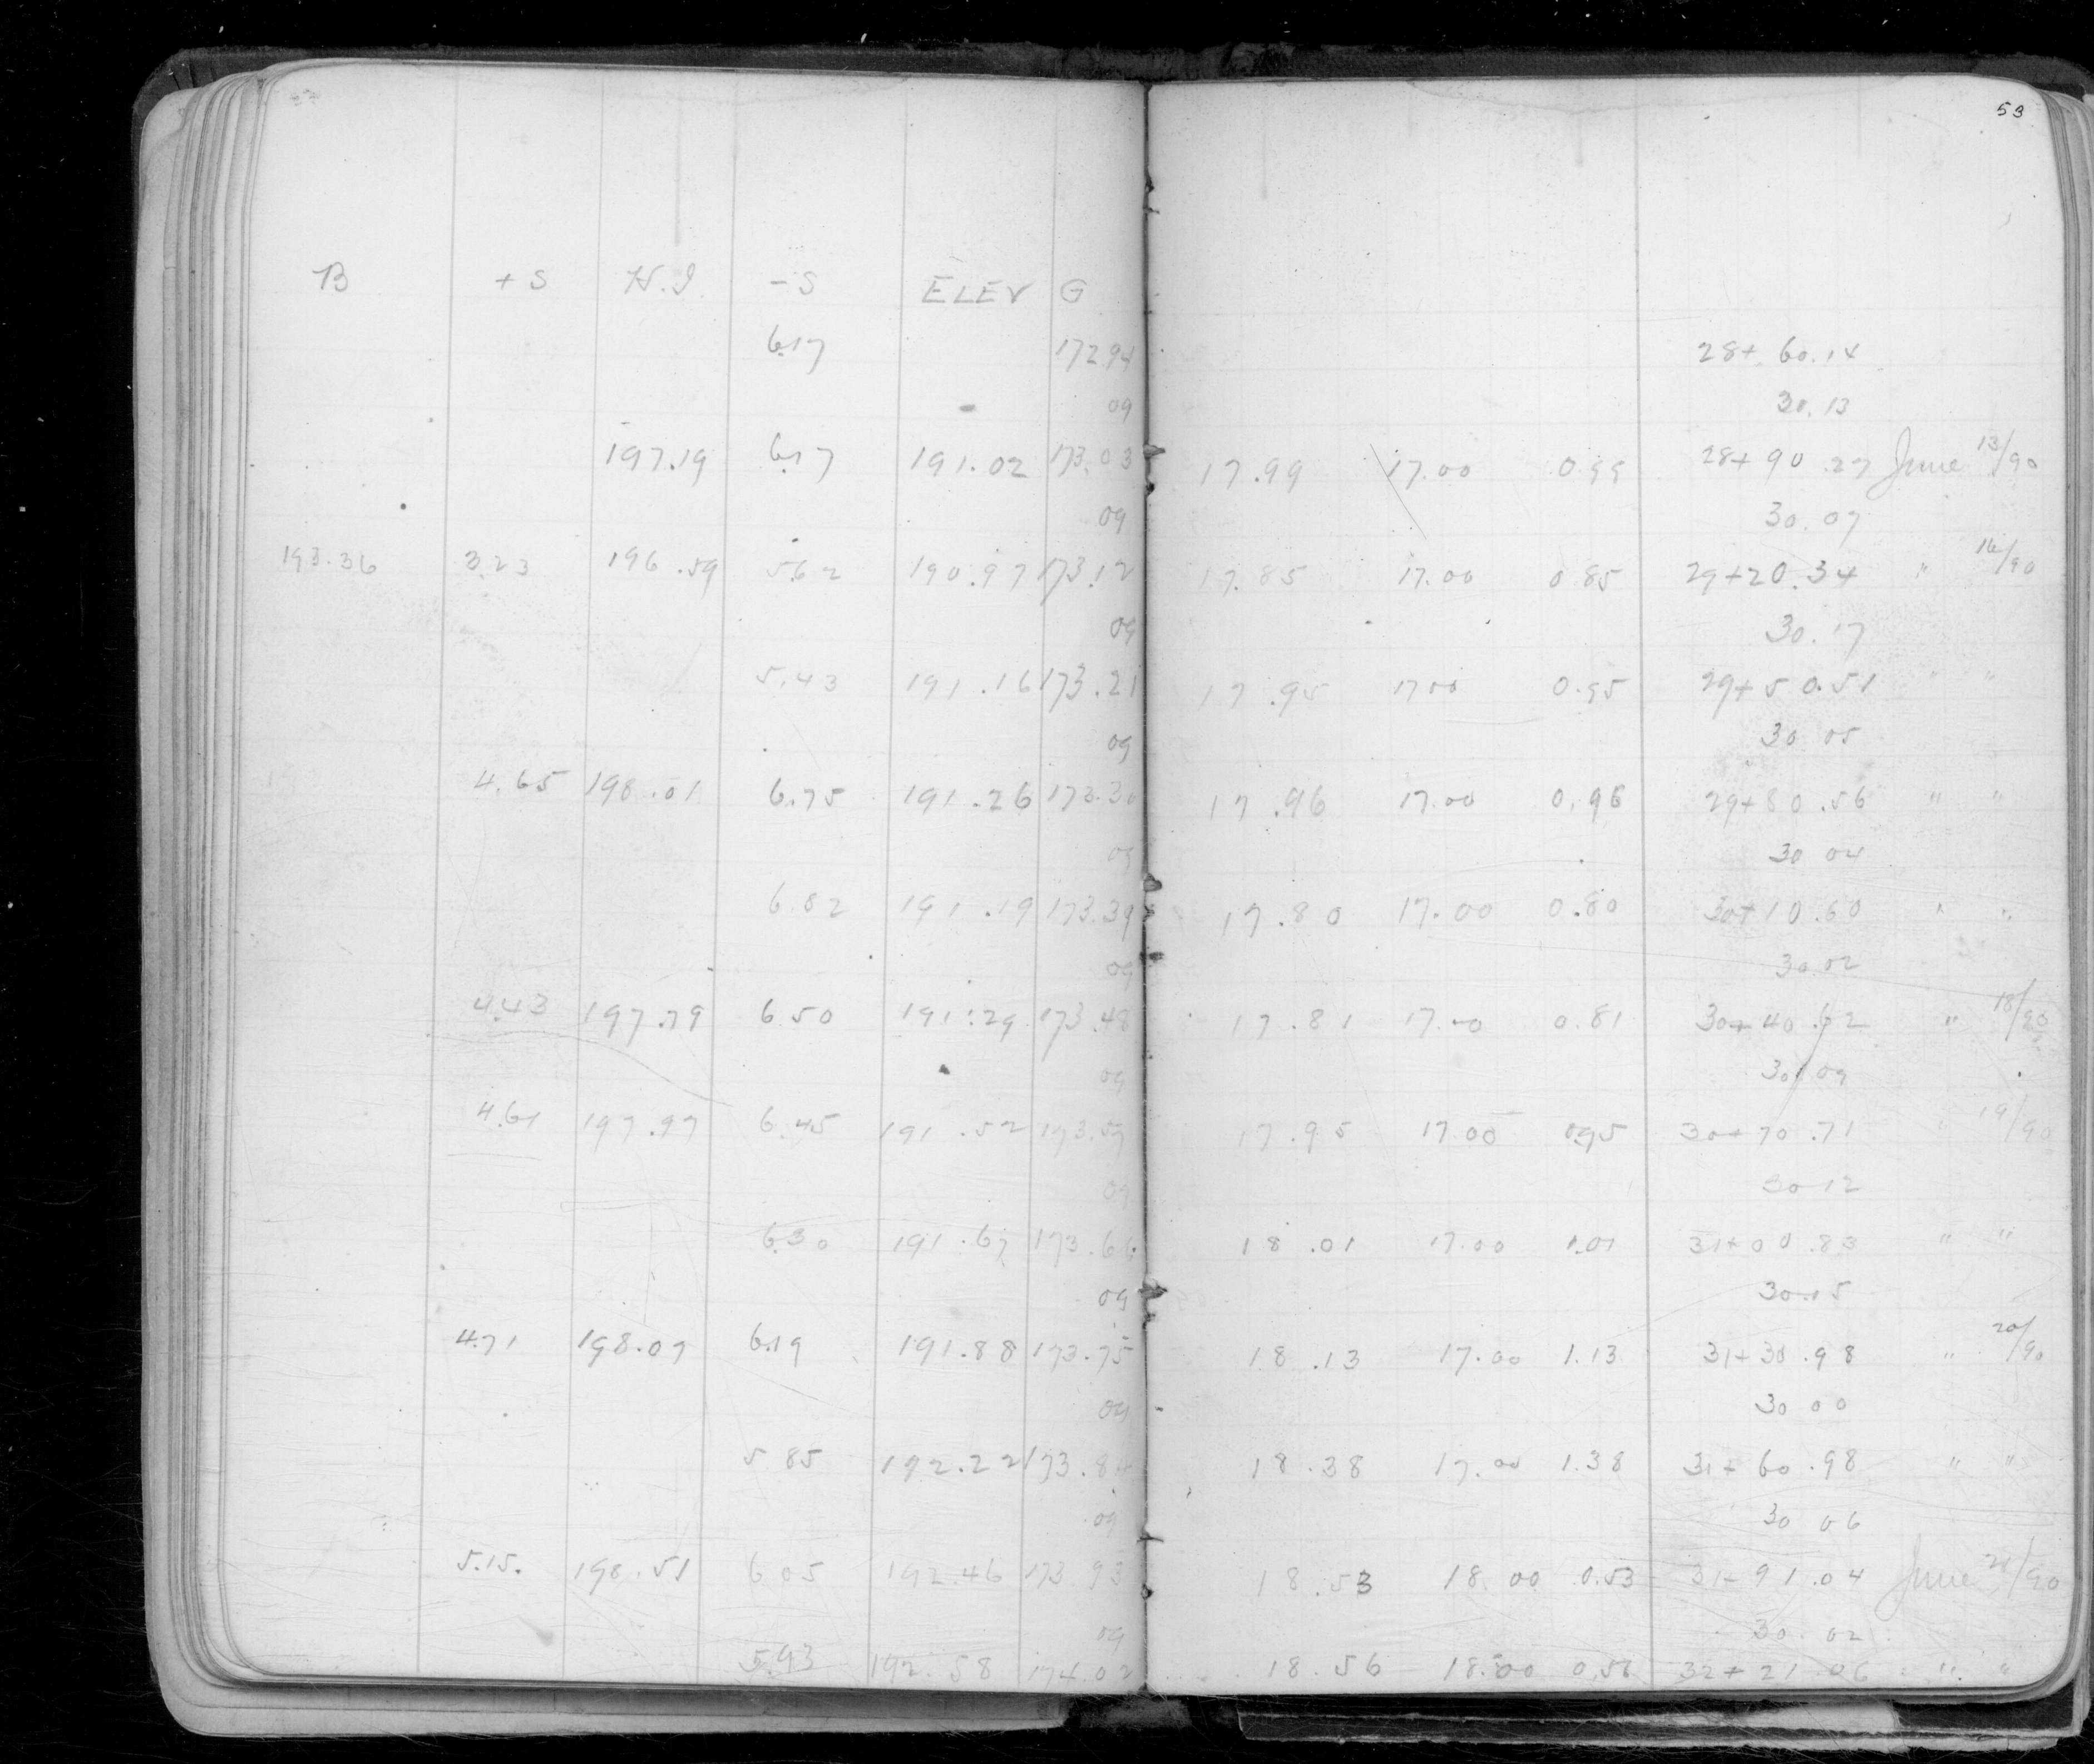 53
B +S H.I. -S ELEV G
6.17 172.94 28+60.14
09 30.13
197.19 6.17 191.02 173.03 17.99 17.00 0.99 28+90.27 June 13/90
09 30.07
193.36 3.23 196.59 5.62 190.97 173.12 17.85 17.00 0.85 29+20.34 " 16/90
09 30.17
5.43 191.16 173.21 17.95 17.00 0.95 29+50.51 " "
09 30 05
4.65 198.01 6.75 191.26 173.30 17.96 17.00 0.96 29+80.56 " "
09 30 04
6.82 191.19 173.39 17.80 17.00 0.80 30+10.60 " "
09 30.02
4.43 197.79 6.50 191.29 173.48 17.81 17.00 0.81 30+40.62 " 18/90
09 30.09
4.61 197.97 6.45 191.52 173.57 17.95 17.00 0.95 30+70.71 " 19/90
09 30 12
6.30 191.67 173.66 18.01 17.00 1.01 31+00.83 " "
09 30.15
4.71 198.07 6.19 191.88 173.75 18.13 17.00 1.13 31+30.98 " 20/90
09 30 00
5.85 192.22 173.84 18.38 17.00 1.38 31+60.98 " "
09 30 06
5.15. 198.51 6.05 192.46 173.93 18.53 18.00 0.53 31+91.04 June 21/90
09 30.02
5.93 192.58 174.02 18.56 18.00 0.56 32+21.06 " "